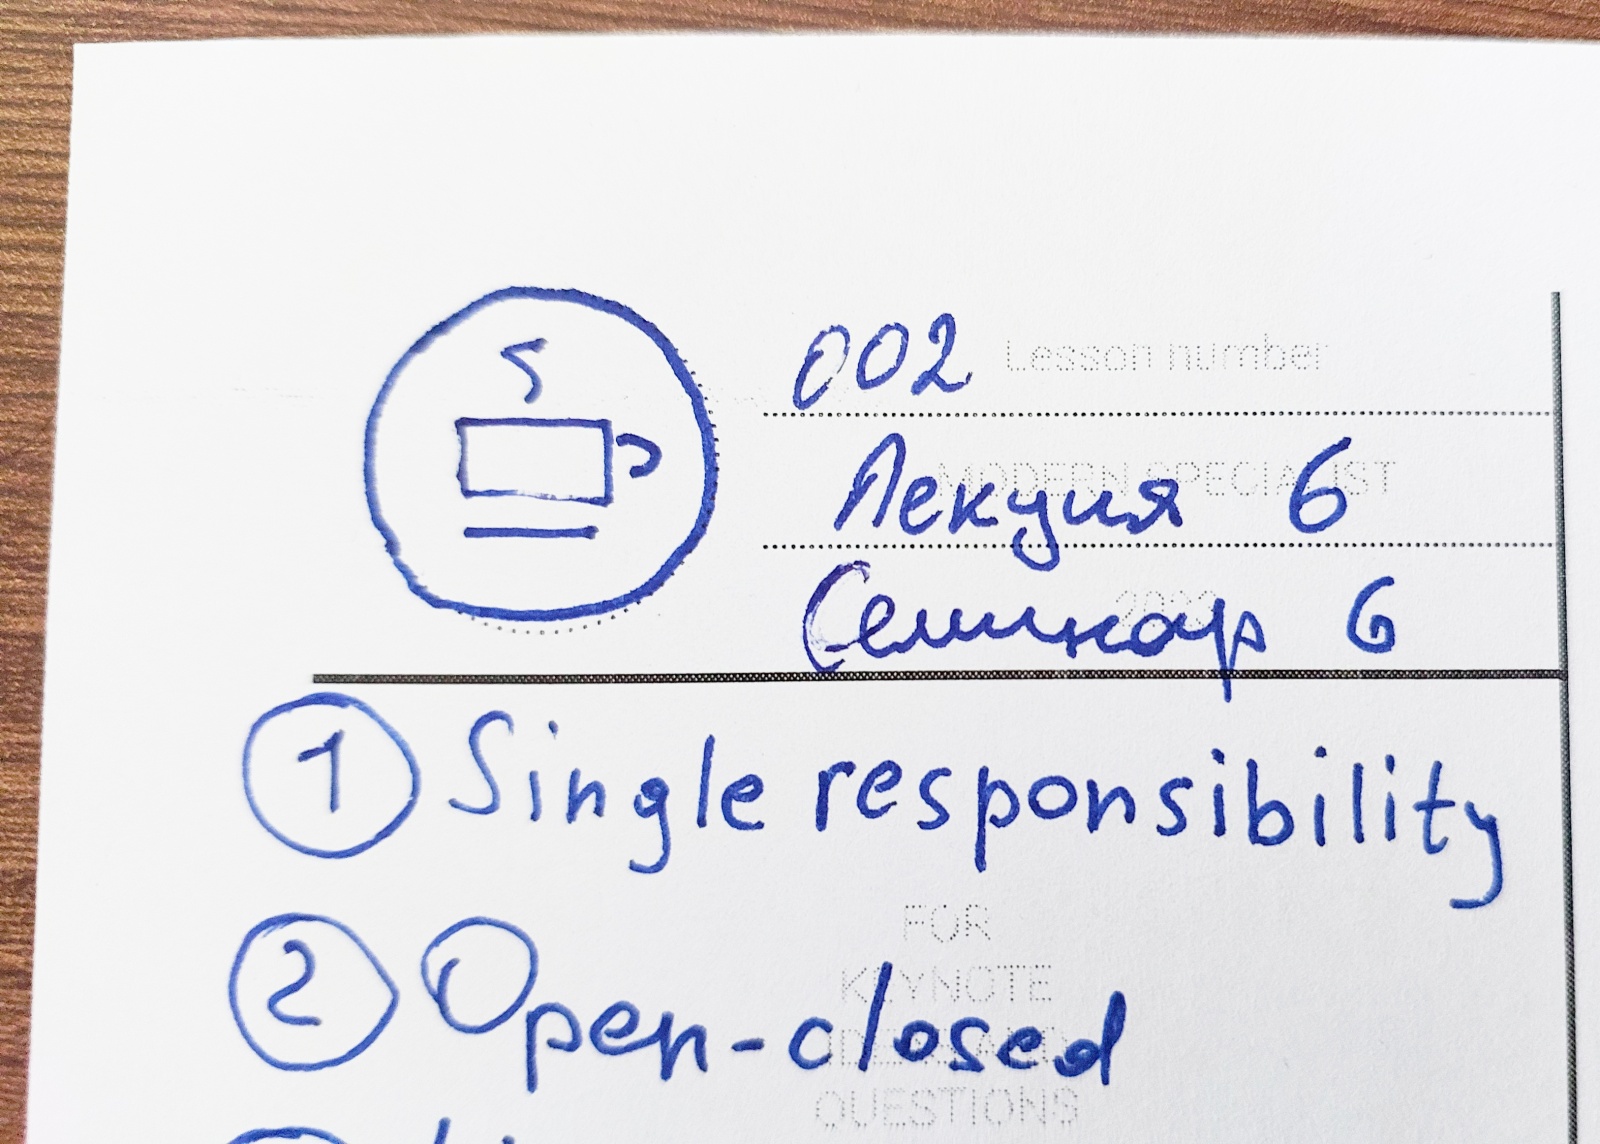 002 Lesson number
MODERN SPECIALIST
Лекция 6
Семинар 6
1 Single responsibility
FOR
KEYNOTE
2 Open-closed
QUESTIONS